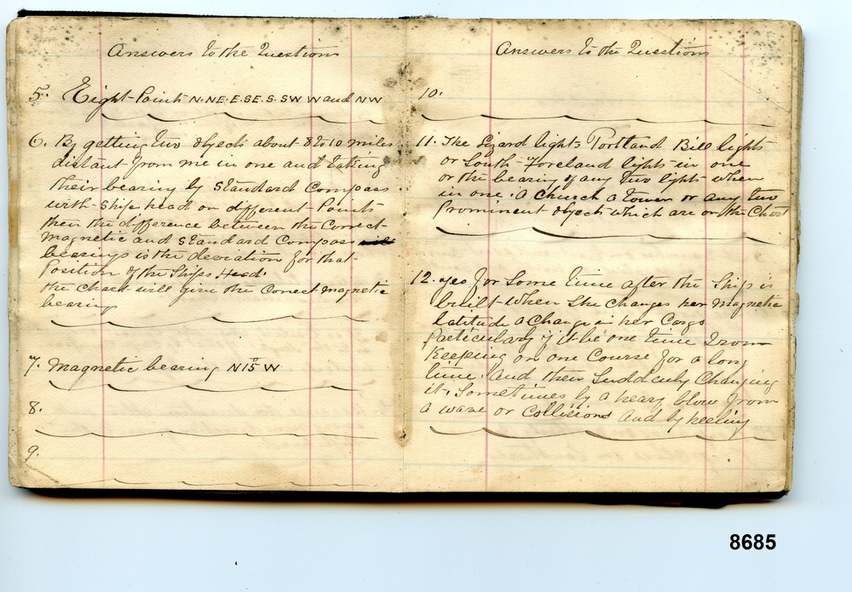 Answers to the Questions
5. Eight Points N. NE. E. SE. S. SW W and NW
6. By getting two objects about 8 to 10 miles
distant from me in one and taking
their bearing by Standard Compass
with Ships head on different Points
then the difference between the Correct
Magnetic and Standard Compass
bearings is the deviation for that
Position of the Ships Head.
the Chart will give the Correct magnetic
bearing
7. Magnetic bearing N 15° W
8.
9.
Answers to the Questions
10.
11. The Lizard lights Portland Bill lights
or South Foreland lights in one
or the bearing of any two lights when
in one. A Church a tower or any two
Prominent objects which are on the Chart
12. yes for Some time after the Ship is
built when She Changes her Magnetic
latitude a Change in her Cargo
Particularly if it be one time Iron
Keeping on one Course for a long
time. And then Suddenly Changing
it. Sometimes by a heavy blow from
a wave or Collisions and by heeling
8685